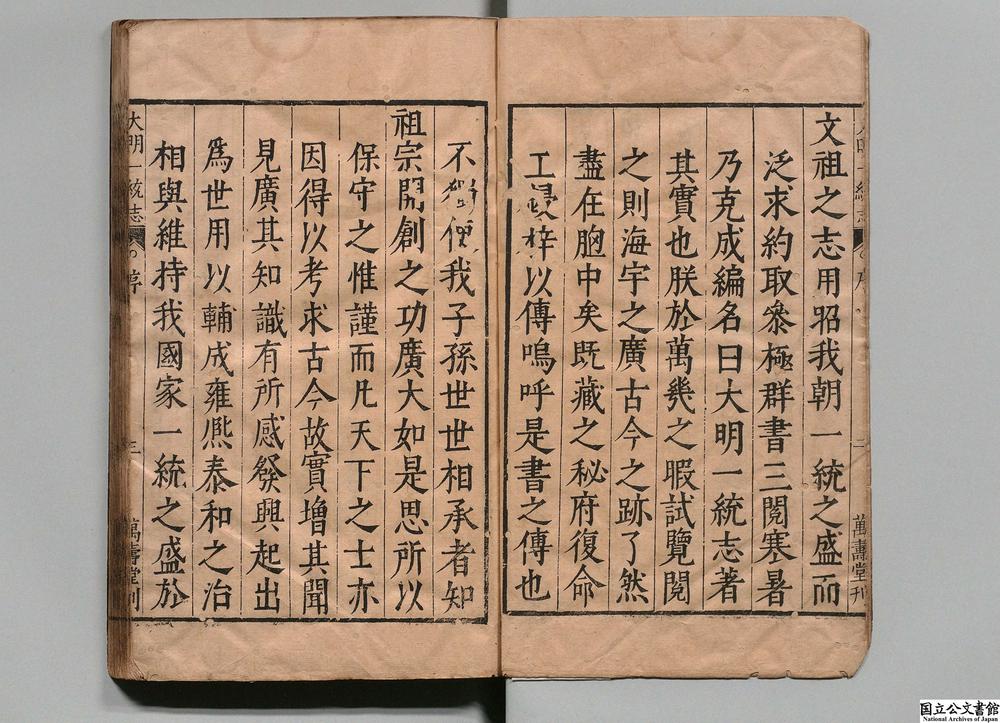 文祖之志用昭我朝一統之盛而
泛求約取叅極群書三閱寒暑
乃克成編名曰大明一統志著
其實也朕於萬幾之暇試覽閱
之則海宇之廣古今之跡了然
盡在胸中矣既藏之秘府復命
工鋟梓以傳嗚呼是書之傳也
萬壽堂刊
不獨使我子孫世世相承者知
祖宗開創之功廣大如是思所以
保守之惟謹而凡天下之士亦
因得以考求古今故實增其聞
見廣其知識有所感發興起出
為世用以輔成雍熈泰和之治
相與維持我國家一統之盛於
大明一統志 序 三 萬壽堂刊
国立公文書館
National Archives of Japan